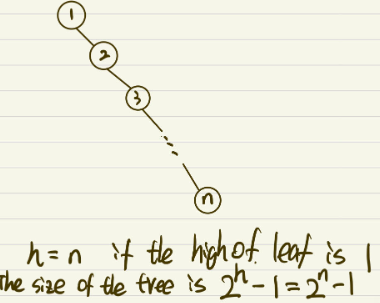 1
2
3
n
h = n if the high of leaf is 1
the size of the tree is 2^h - 1 = 2^n - 1